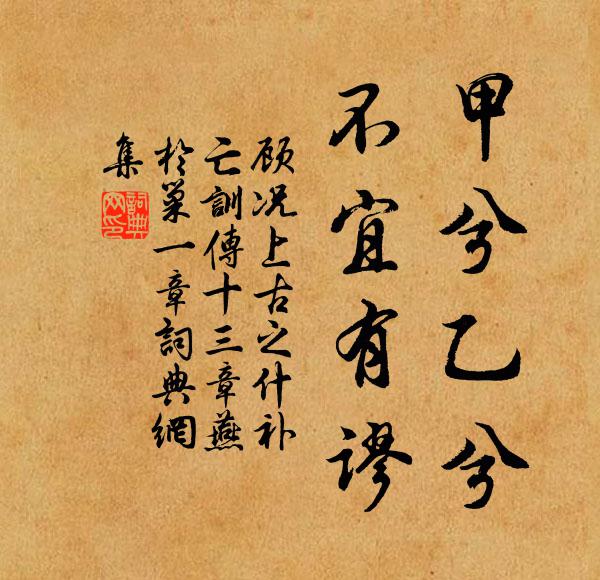 甲兮乙兮
不宜有谬
顾况上古之什补
亡訓傳十三章燕
於巢一章詞典網
集
詞典
网印